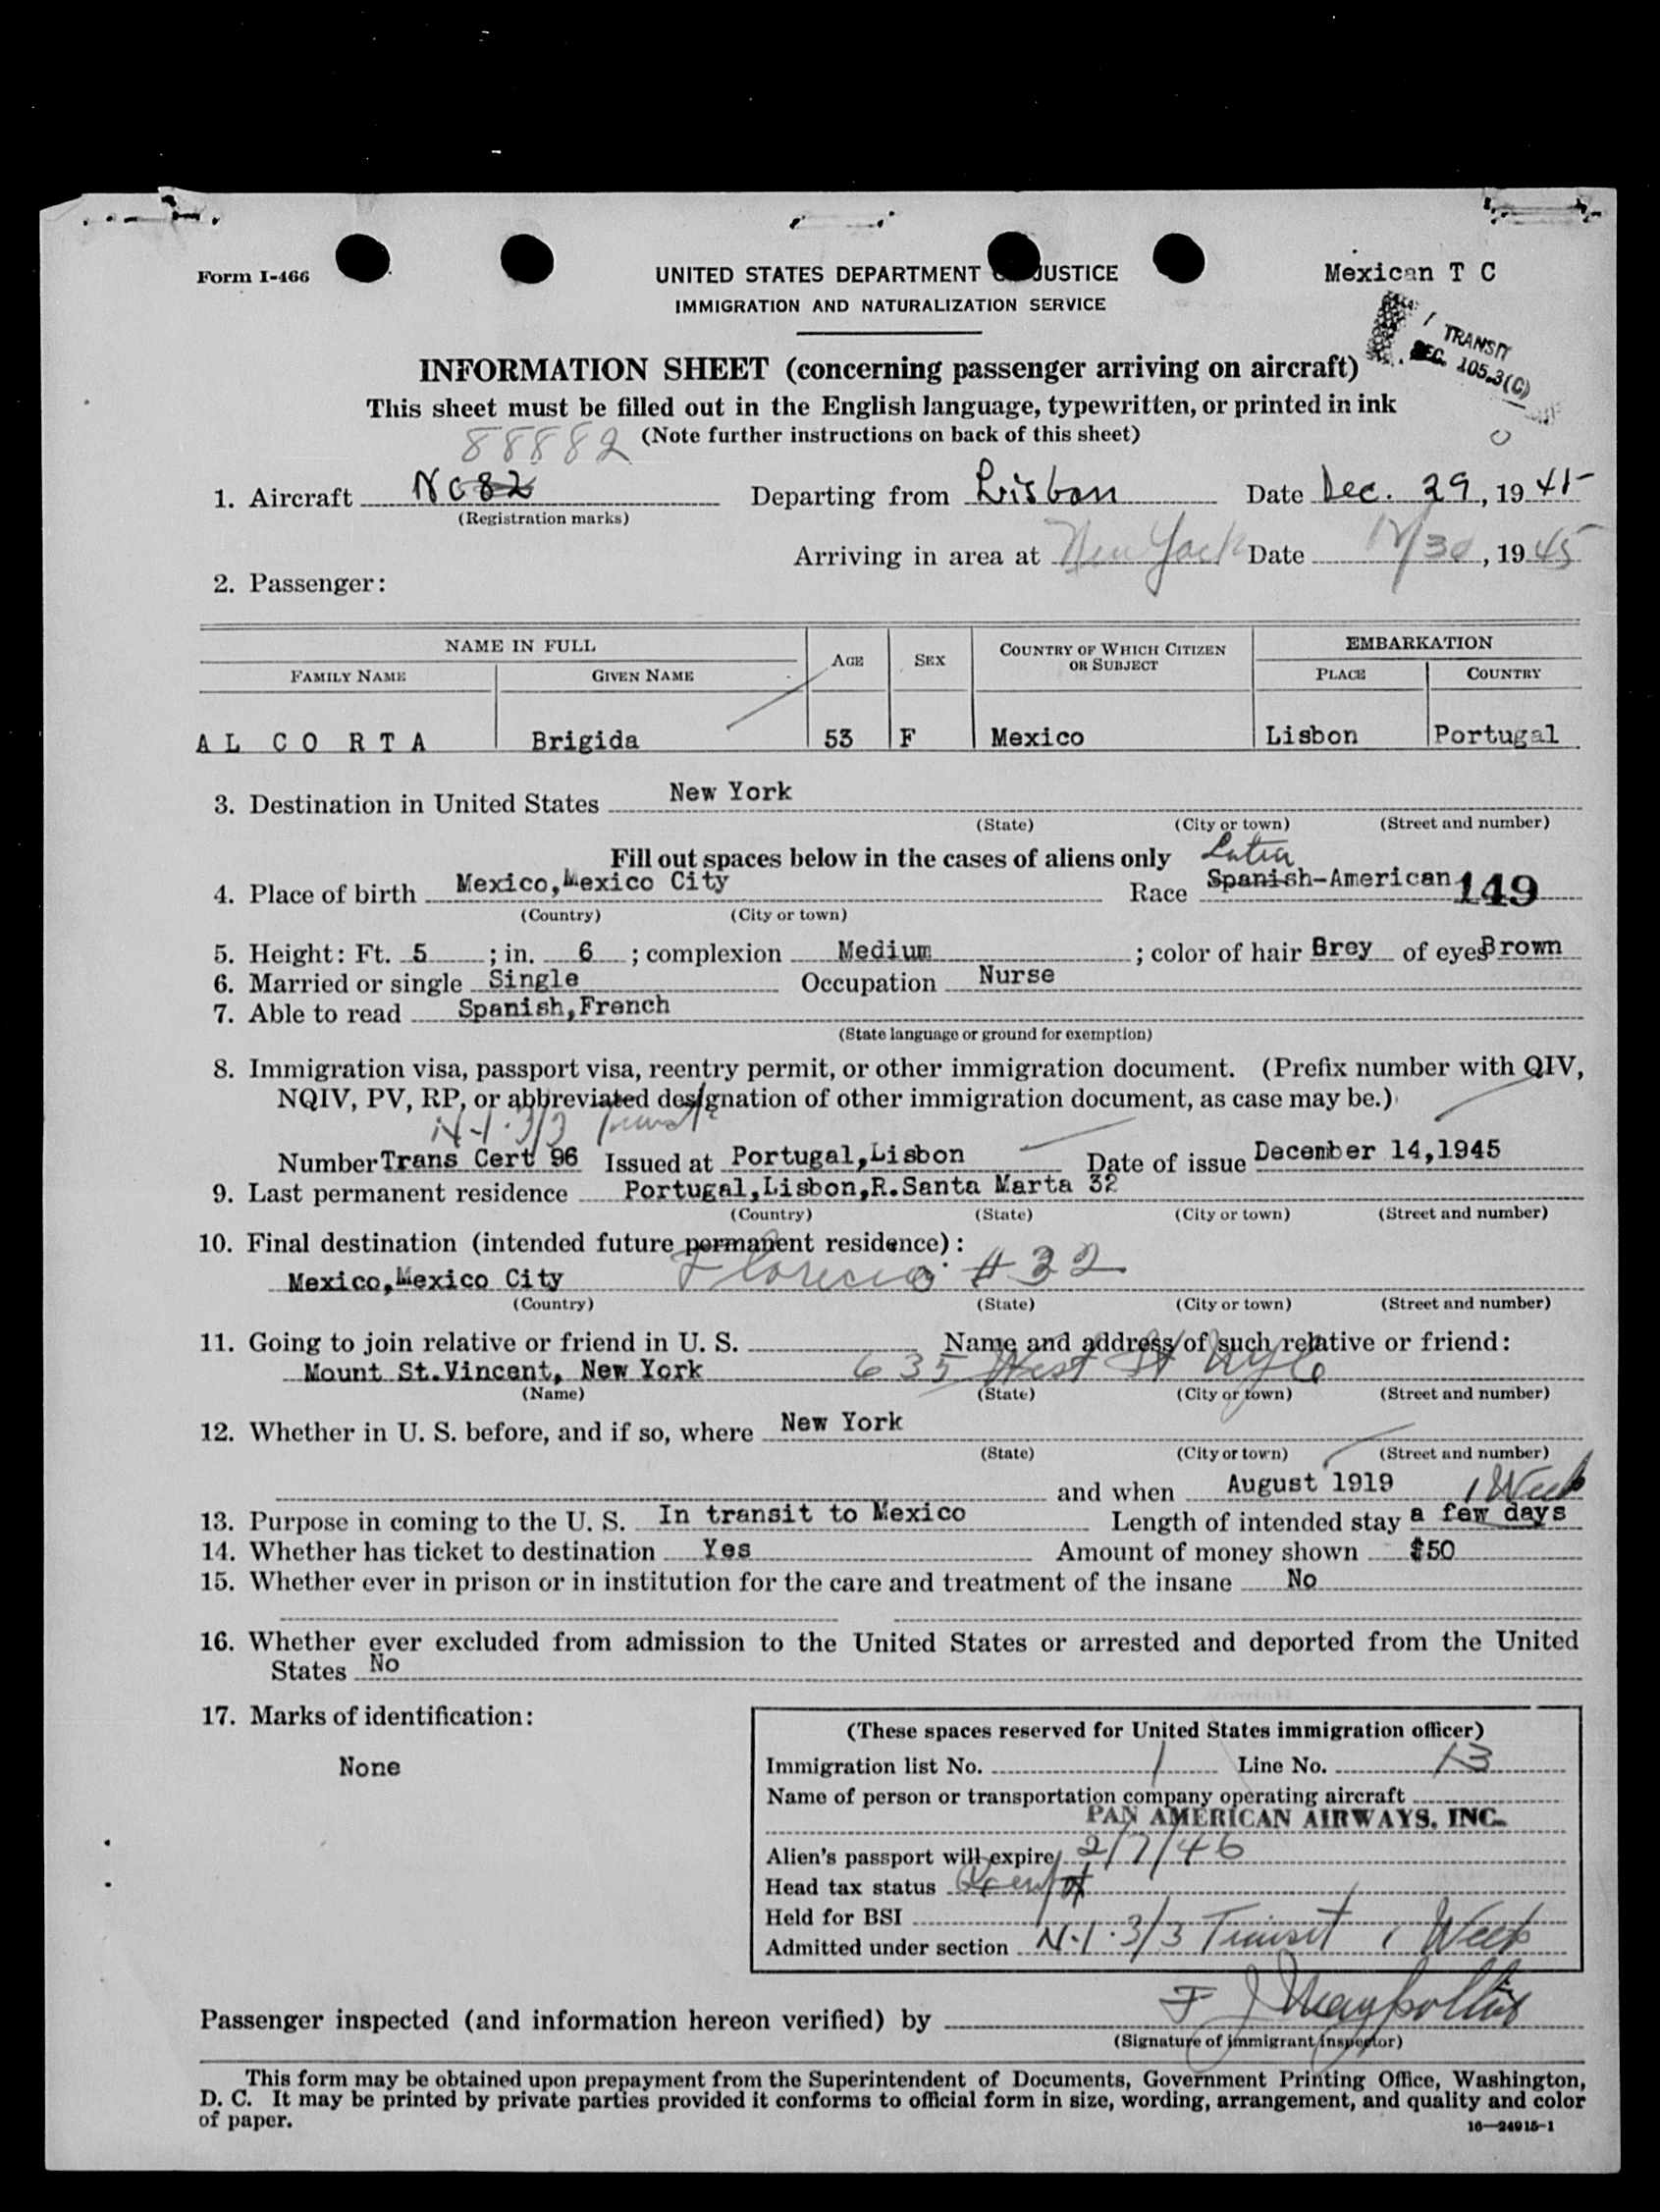 Form I-466
UNITED STATES DEPARTMENT JUSTICE
Mexican T C
IMMIGRATION AND NATURALIZATION SERVICE
TRANSIT
SEC. 105.3(C)
INFORMATION SHEET (concerning passenger arriving on aircraft)
This sheet must be filled out in the English language, typewritten, or printed in ink
88882 (Note further instructions on back of this sheet)
1. Aircraft NC82 Departing from Lisbon Date Dec. 29, 1945
(Registration marks)
Arriving in area at New York Date 12/30, 1945
2. Passenger:
NAME IN FULL AGE SEX COUNTRY OF WHICH CITIZEN OR SUBJECT EMBARKATION
FAMILY NAME GIVEN NAME PLACE COUNTRY
AL CO RTA Brigida 53 F Mexico Lisbon Portugal
3. Destination in United States New York
(State) (City or town) (Street and number)
Fill out spaces below in the cases of aliens only Latin
4. Place of birth Mexico,Mexico City Race Spanish-American 149
(Country) (City or town)
5. Height: Ft. 5 ; in. 6 ; complexion Medium ; color of hair Grey of eyes Brown
6. Married or single Single Occupation Nurse
7. Able to read Spanish,French
(State language or ground for exemption)
8. Immigration visa, passport visa, reentry permit, or other immigration document. (Prefix number with QIV,
NQIV, PV, RP, or abbreviated designation of other immigration document, as case may be.)
N-1·3/3 Transit
Number Trans Cert 96 Issued at Portugal,Lisbon Date of issue December 14,1945
9. Last permanent residence Portugal,Lisbon,R.Santa Marta 32
(Country) (State) (City or town) (Street and number)
10. Final destination (intended future permanent residence):
Mexico,Mexico City #32
(Country) (State) (City or town) (Street and number)
11. Going to join relative or friend in U. S. Name and address of such relative or friend:
Mount St.Vincent, New York 635 West St NYC
(Name) (State) (City or town) (Street and number)
12. Whether in U. S. before, and if so, where New York
(State) (City or town) (Street and number)
and when August 1919 1 Week
13. Purpose in coming to the U. S. In transit to Mexico Length of intended stay a few days
14. Whether has ticket to destination Yes Amount of money shown $50
15. Whether ever in prison or in institution for the care and treatment of the insane No
16. Whether ever excluded from admission to the United States or arrested and deported from the United
States No
17. Marks of identification:
None
(These spaces reserved for United States immigration officer)
Immigration list No. 1 Line No. 13
Name of person or transportation company operating aircraft
PAN AMERICAN AIRWAYS, INC.
Alien's passport will expire 2/7/46
Head tax status Exempt
Held for BSI
Admitted under section N-1·3/3 Transit 1 Week
Passenger inspected (and information hereon verified) by F J
(Signature of immigrant inspector)
This form may be obtained upon prepayment from the Superintendent of Documents, Government Printing Office, Washington,
D. C. It may be printed by private parties provided it conforms to official form in size, wording, arrangement, and quality and color
of paper.
16—24915-1